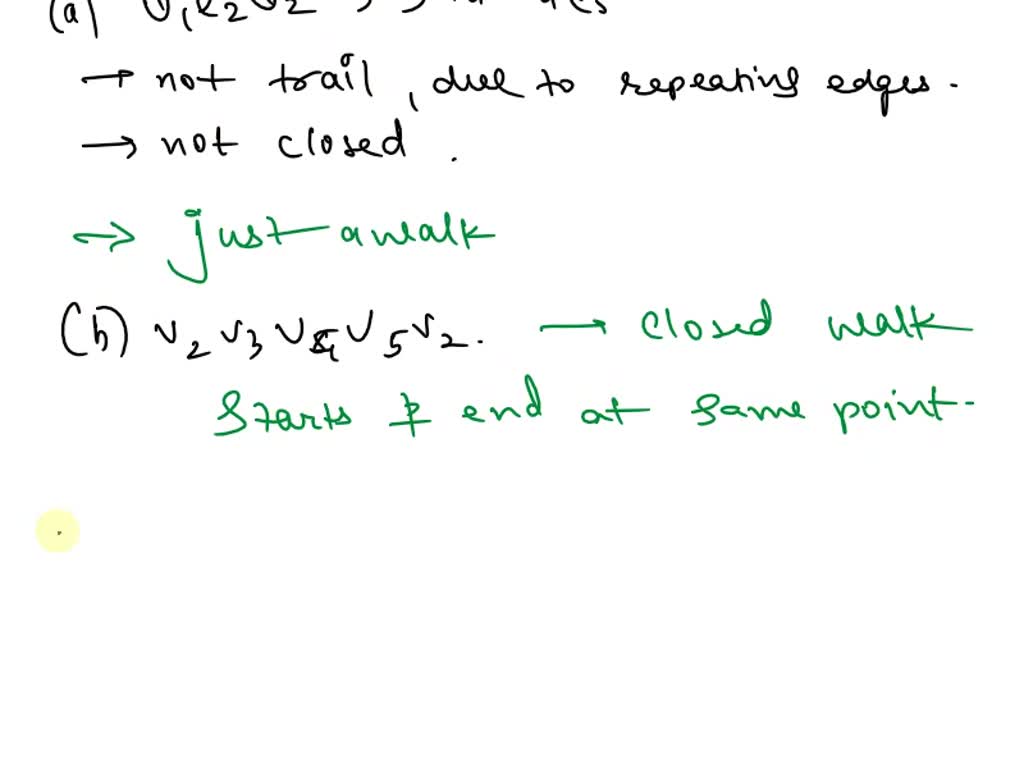 (a) v₁e₂v₂
→ not trail, due to repeating edges.
→ not closed.
→ just a walk
(b) v₂v₃v₄v₅v₂. → closed walk
Starts & end at same point.